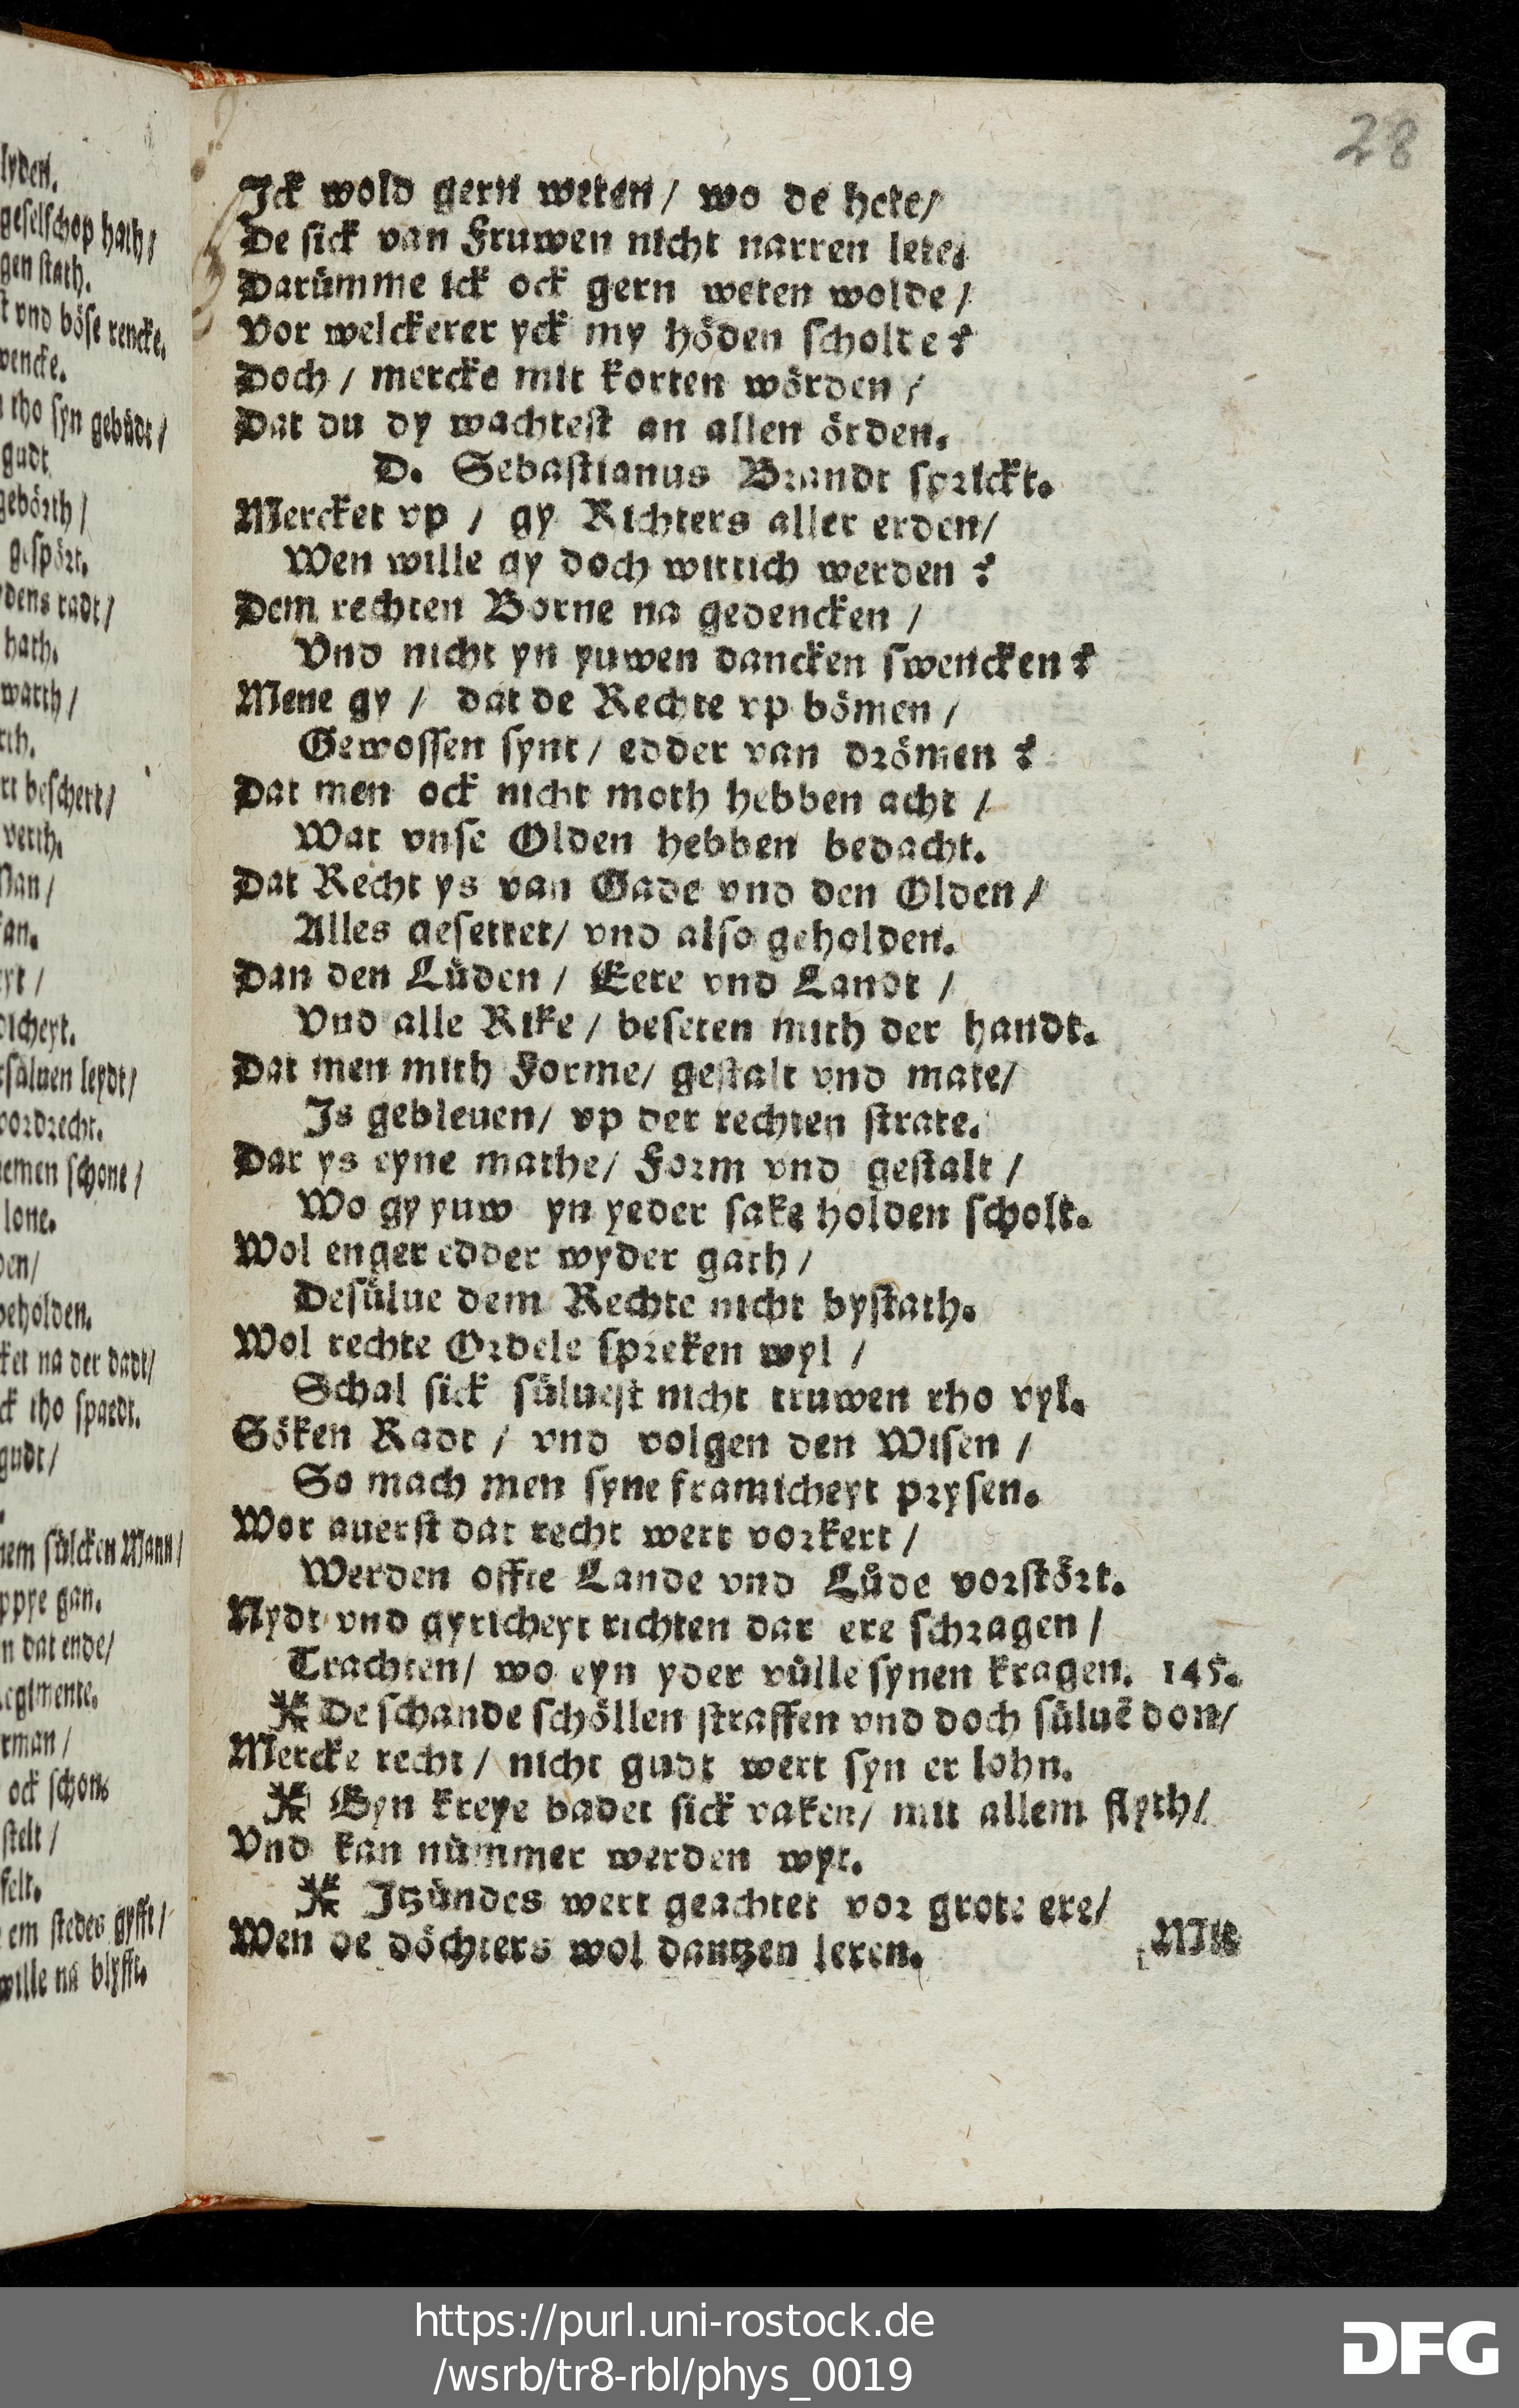 lyden.
geselschop hath /
gen stath.
t vnd böse rencke.
wencke.
tho syn gebüdt /
gudt
gebörth /
gespört.
dens radt /
hath.
warth /
rth.
rt beschert /
verth.
an /
kan.
eyt /
dicheyt.
süluen leydt /
vordrecht.
nemen schone /
lone.
den /
beholden.
ket na der dadt /
ck tho spaedt.
gudt /
nem sülcken Mann /
ppye gan.
n dat ende /
egimente.
rman /
ock schon.
stelt /
felt.
em stedes gyfft /
wille na blyfft.
28
Ick wold gern weten / wo de hete /
De sick van Fruwen nicht narren lete.
Darümme ick ock gern weten wolde /
Vor welckerer yck my höden scholte ?
Doch / mercke mit korten wörden /
Dat du dy wachtest an allen örden.
D. Sebastianus Brandt sprickt.
Mercket vp / gy Richters aller erden /
Wen wille gy doch wittich werden ?
Dem rechten Borne na gedencken /
Vnd nicht yn yuwen dancken swencken ?
Mene gy / dat de Rechte vp bömen /
Gewossen synt / edder van drömen ?
Dat men ock nicht moth hebben acht /
Wat vnse Olden hebben bedacht.
Dat Recht ys van Gade vnd den Olden /
Alles gesettet / vnd also geholden.
Dan den Lüden / Eere vnd Landt /
Vnd alle Rike / beseten mith der handt.
Dat men mith Forme / gestalt vnd mate /
Is gebleuen / vp der rechten strate.
Dar ys eyne mathe / Form vnd gestalt /
Wo gy yuw yn yeder sake holden scholt.
Wol enger edder wyder gath /
Desülue dem Rechte nicht bystath.
Wol rechte Ordele spreken wyl /
Schal sick süluest nicht truwen tho vyl.
Söken Radt / vnd volgen den Wisen /
So mach men syne framicheyt prysen.
Wor auerst dat recht wert vorkert /
Werden offte Lande vnd Lüde vorstört.
Nydt vnd gyricheyt richten dar ere schragen /
Trachten / wo eyn yder vülle synen kragen. 145.
De schande schöllen straffen vnd doch süluē don /
Mercke recht / nicht gudt wert syn er lohn.
Eyn kreye badet sick vaken / mit allem flyth /
Vnd kan nümmer werden wyt.
Itzündes wert geachtet vor grote ere /
Wen de döchters wol dantzen leren.
Mit
https://purl.uni-rostock.de
/wsrb/tr8-rbl/phys_0019
DFG